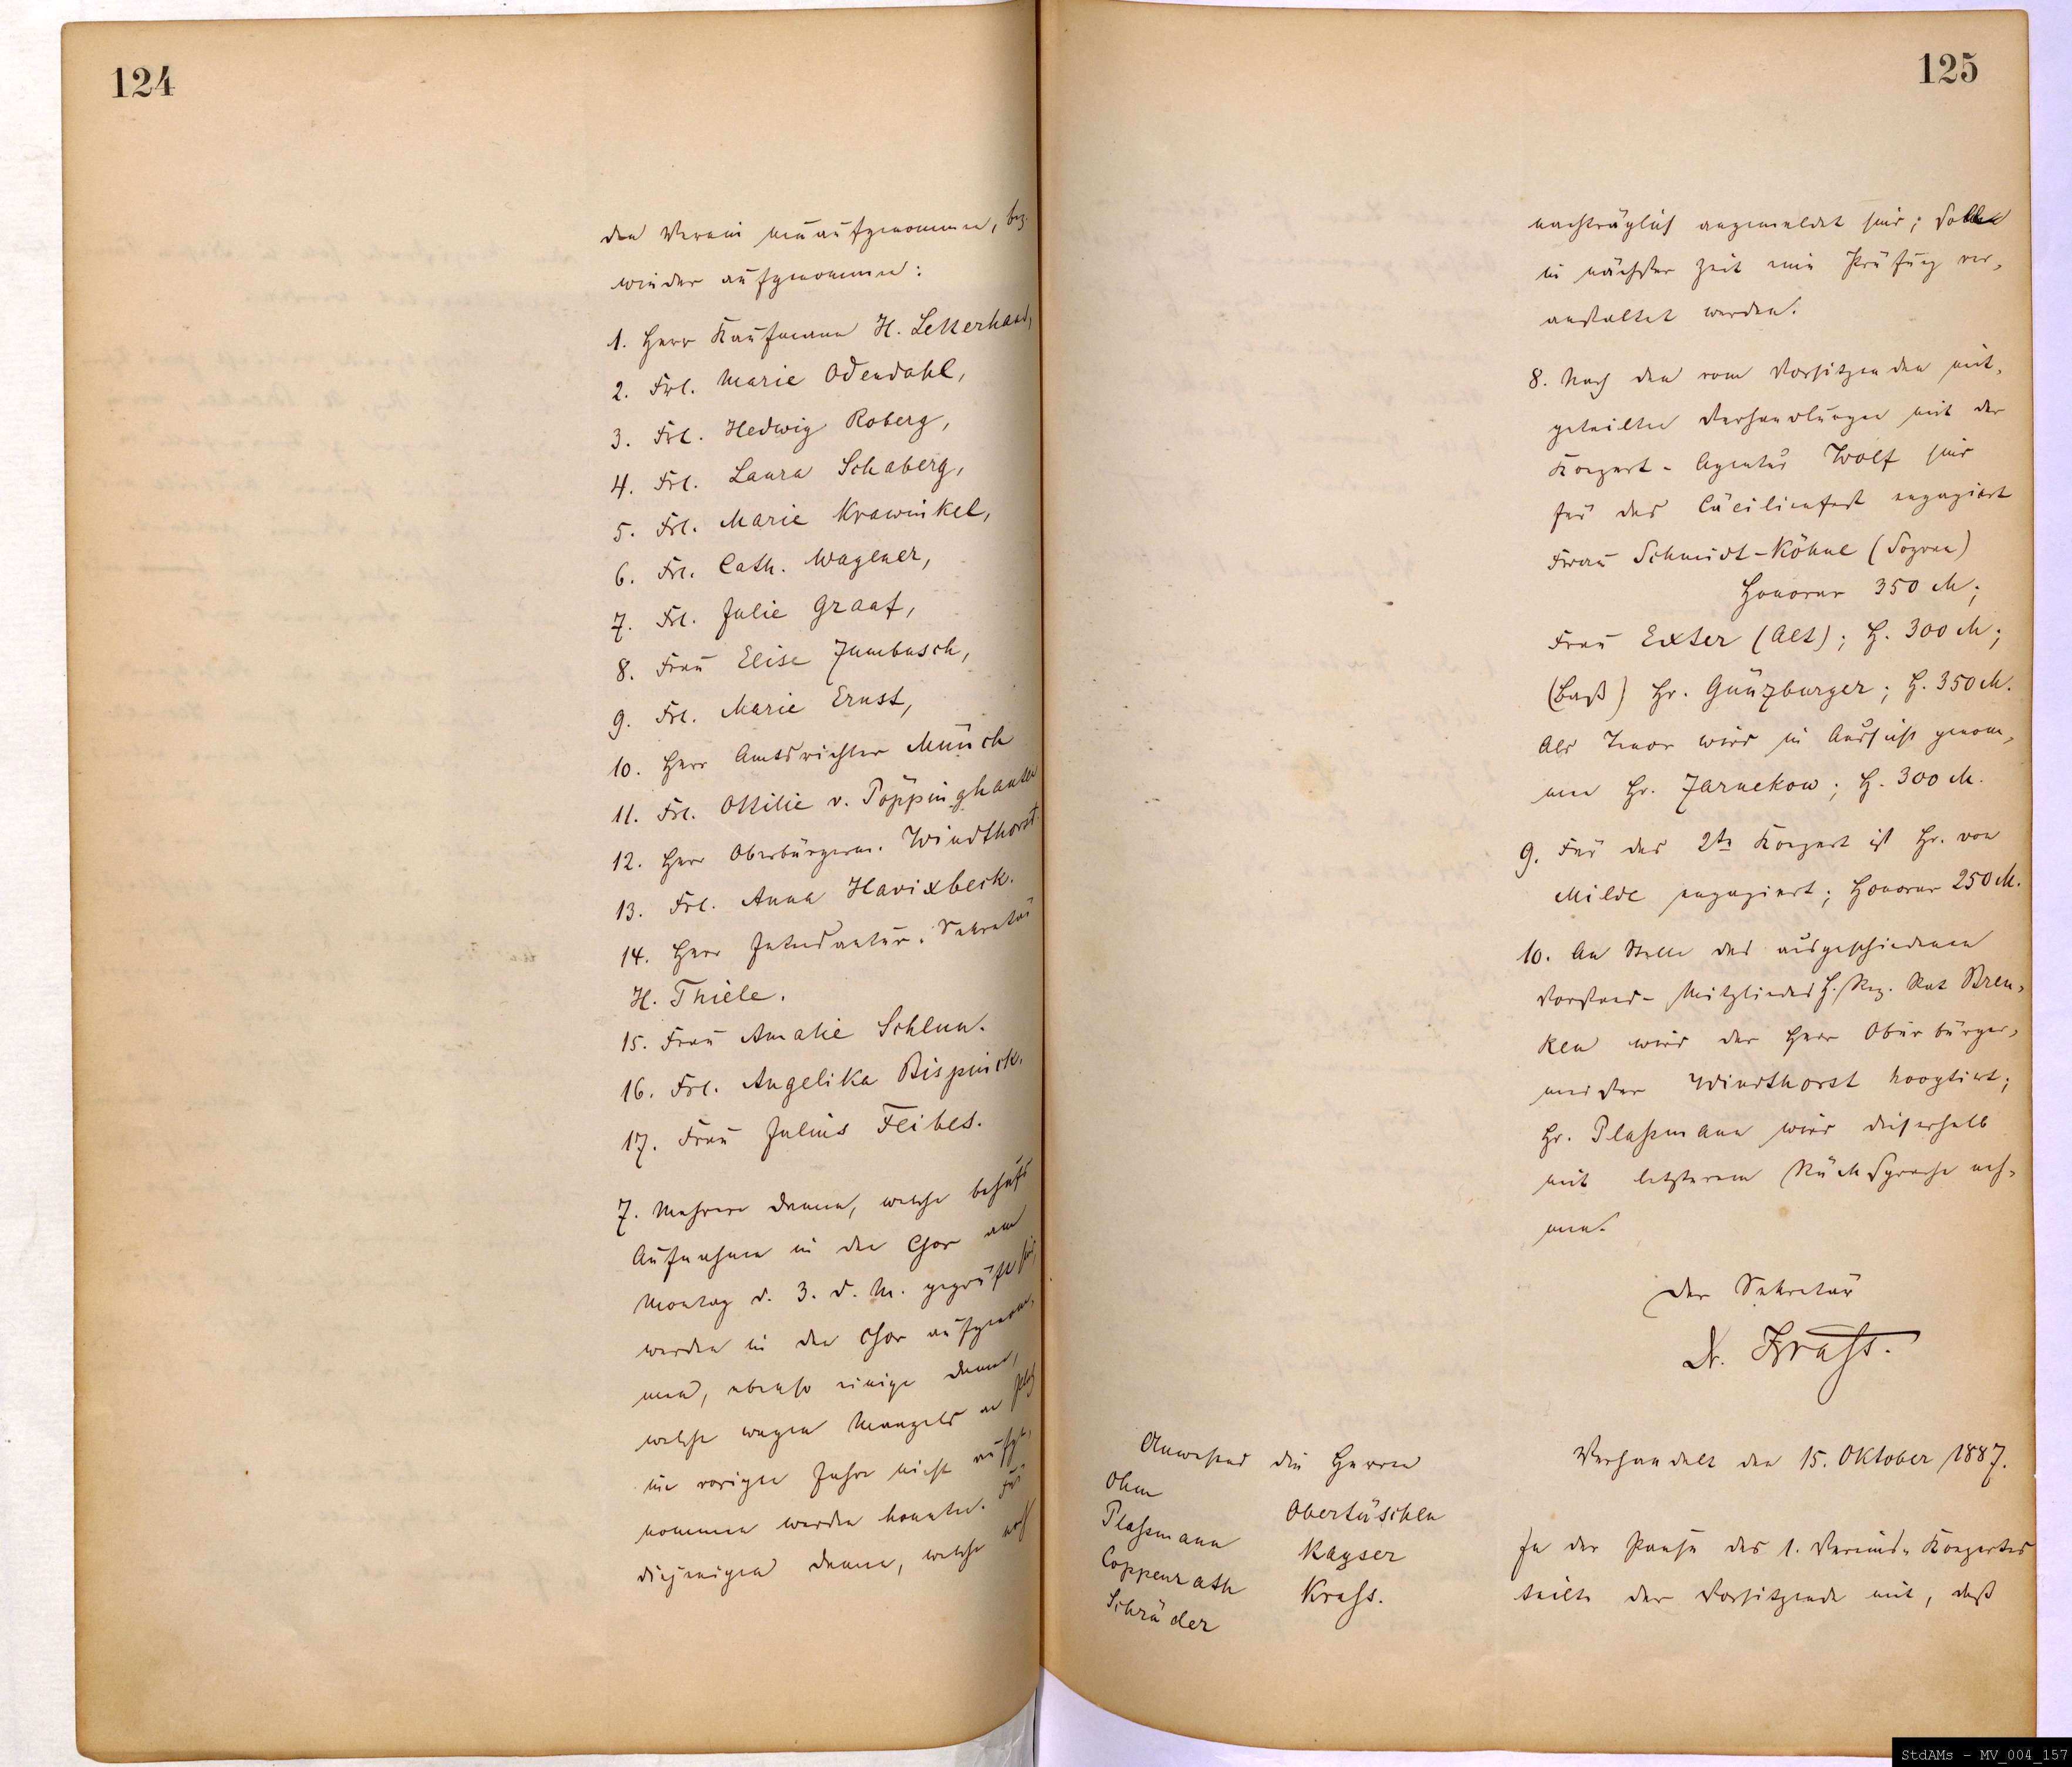 124
den Verein neu aufgenommen, bez.
wieder aufgenommen:
1. Herr Kaufmann H. Letterhaus,
2. Frl. Marie Odendahl,
3. Frl. Hedwig Roberg,
4. Frl. Laura Schaberg,
5. Frl. Marie Krawinkel,
6. Frl. Cath. Wagener,
7. Frl. Julie Graaf,
8. Frau Elise Zumbusch,
9. Frl. Marie Ernst,
10. Herr Amtsrichter Münch
11. Frl. Ottilie v. Pöppinghausen
12. Herr Oberbürgerm. Windthorst.
13. Frl. Anna Havixbeck.
14. Herr Intendantur-Sekretär
H. Thiele.
15. Frau Amalie Schlun.
16. Frl. Angelika Bispinck.
17. Frau Julius Feibes.
7. Mehrere Damen, welche behufs
Aufnahme in den Chor am
Montag d. 3. d. M. geprüft sind,
werden in den Chor aufgenom-
men, ebenso einige Damen,
welche wegen Mangels an Platz
im vorigen Jahre nicht aufge-
nommen werden konnten. Für
diejenigen Damen, welche noch
125
nachträglich angemeldet sind, soll
in nächster Zeit eine Prüfung ver-
anstaltet werden.
8. Nach den vom Vorsitzenden mit-
geteilten Verhandlungen mit der
Konzert-Agentur Wolf sind
für das Cäcilienfest engagiert
Frau Schmidt-Köhne (Sopran)
Honorar 350 M;
Frau Exter (Alt); H. 300 M;
(Baß) Hr. Günzburger; H. 350 M.
Als Tenor wird in Aussicht genom-
men Hr. Zarnekow; H. 300 M.
9. Für das 2te Konzert ist Hr. von
Milde engagiert; Honorar 250 M.
10. An Stelle des ausgeschiedenen
Vorstand-Mitgliedes H. Reg. Rat Bren-
ken wird der Herr Oberbürger-
meister Windthorst kooptirt;
Hr. Plaßmann wird dieserhalb
mit letzterem Rücksprache neh-
men.
Der Sekretär
Dr. Kraß.
Anwesend die Herren
Ohm
Plaßmann
Coppenrath
Schräder
Obertüschen
Kayser
Kraß.
Verhandelt den 15. Oktober 1887.
In der Pause des 1. Vereins-Konzertes
teilte der Vorsitzende mit, daß
StdAMs - MV_004_157